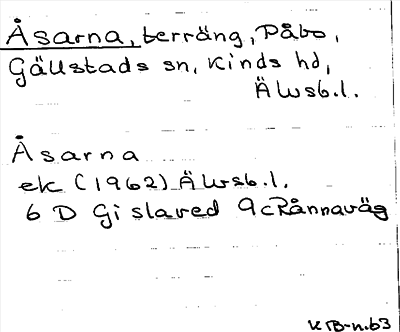 Åsarna, terräng, Påbo,
Gällstads sn, Kinds hd,
Älvsb.l.
Åsarna
ek (1962) Älvsb.l.
6 D Gislaved 9c Rånnaväg
KB-n.63